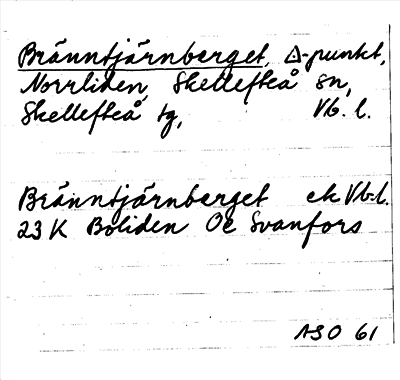 Bränntjärnberget, △-punkt,
Norrliden, Skellefteå sn,
Skellefteå tg, Vb. l.
Bränntjärnberget ek Vb.l.
23 K Boliden Oe Svanfors
ASO 61